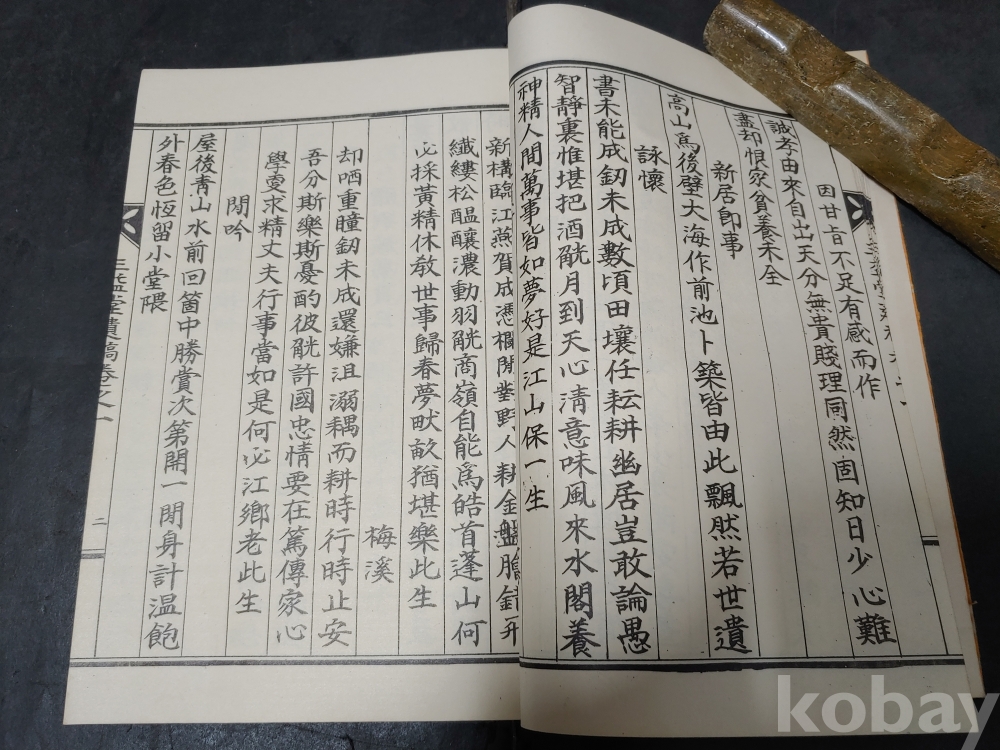 因甘旨不足有感而作
誠孝由來自出天分無貴賤理同然固知日少心難
盡却恨家貧養未全
新居卽事
高山爲後壁大海作前池卜築皆由此飄然若世遺
詠懷
書未能成釼未成數頃田壤任耘耕幽居豈敢論愚
智靜裏惟堪把酒觥月到天心淸意味風來水閣養
神精人間萬事皆如夢好是江山保一生
新構臨江燕賀成憑欄閒
野人耕金盤膾
纖縷松醞釀濃動羽觥商嶺自能爲皓首蓬山何
必採黃精休敎世事歸春夢畎畝猶堪樂此生
梅溪
却哂重瞳釼未成還嫌沮溺耦而耕時行時止安
吾分斯樂斯憂酌彼觥許國忠情要在篤傳家心
學要求精丈夫行事當如是何必江鄕老此生
閒吟
屋後靑山水前回箇中勝賞次第開一閒身計溫飽
外春色恆留小堂隈
堂遺稿卷之一
二
kobay